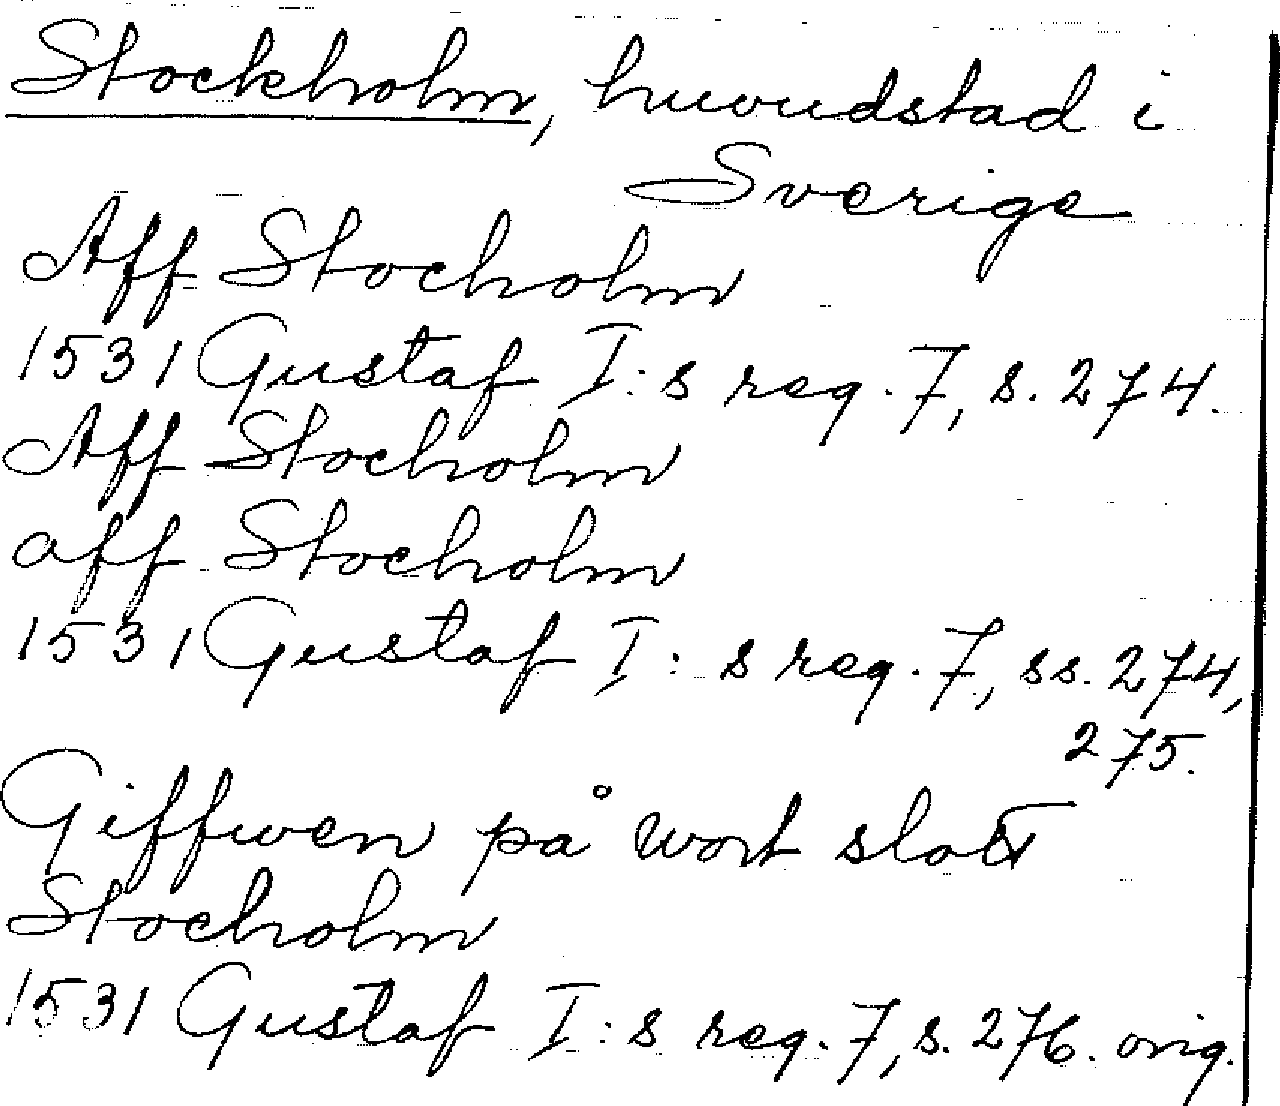 Stockholm, huvudstad i
Sverige
Aff Stocholm
1531 Gustaf I:s reg. 7, s. 274.
Aff Stocholm
aff Stocholm
1531 Gustaf I:s reg. 7, ss. 274,
275.
Giffwen på wort slott
Stocholm
1531 Gustaf I:s reg. 7, s. 276. orig.